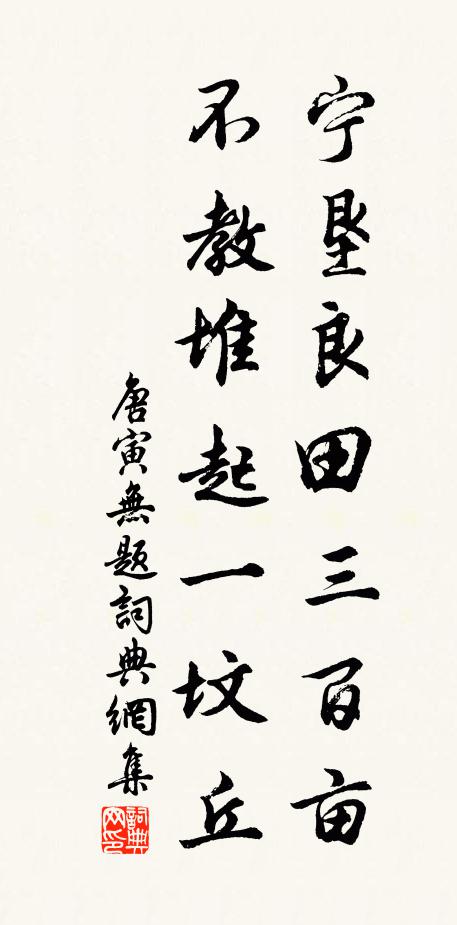 宁垦良田三百亩
不教堆起一坟丘
唐寅無题詞典網集
詞典
网印